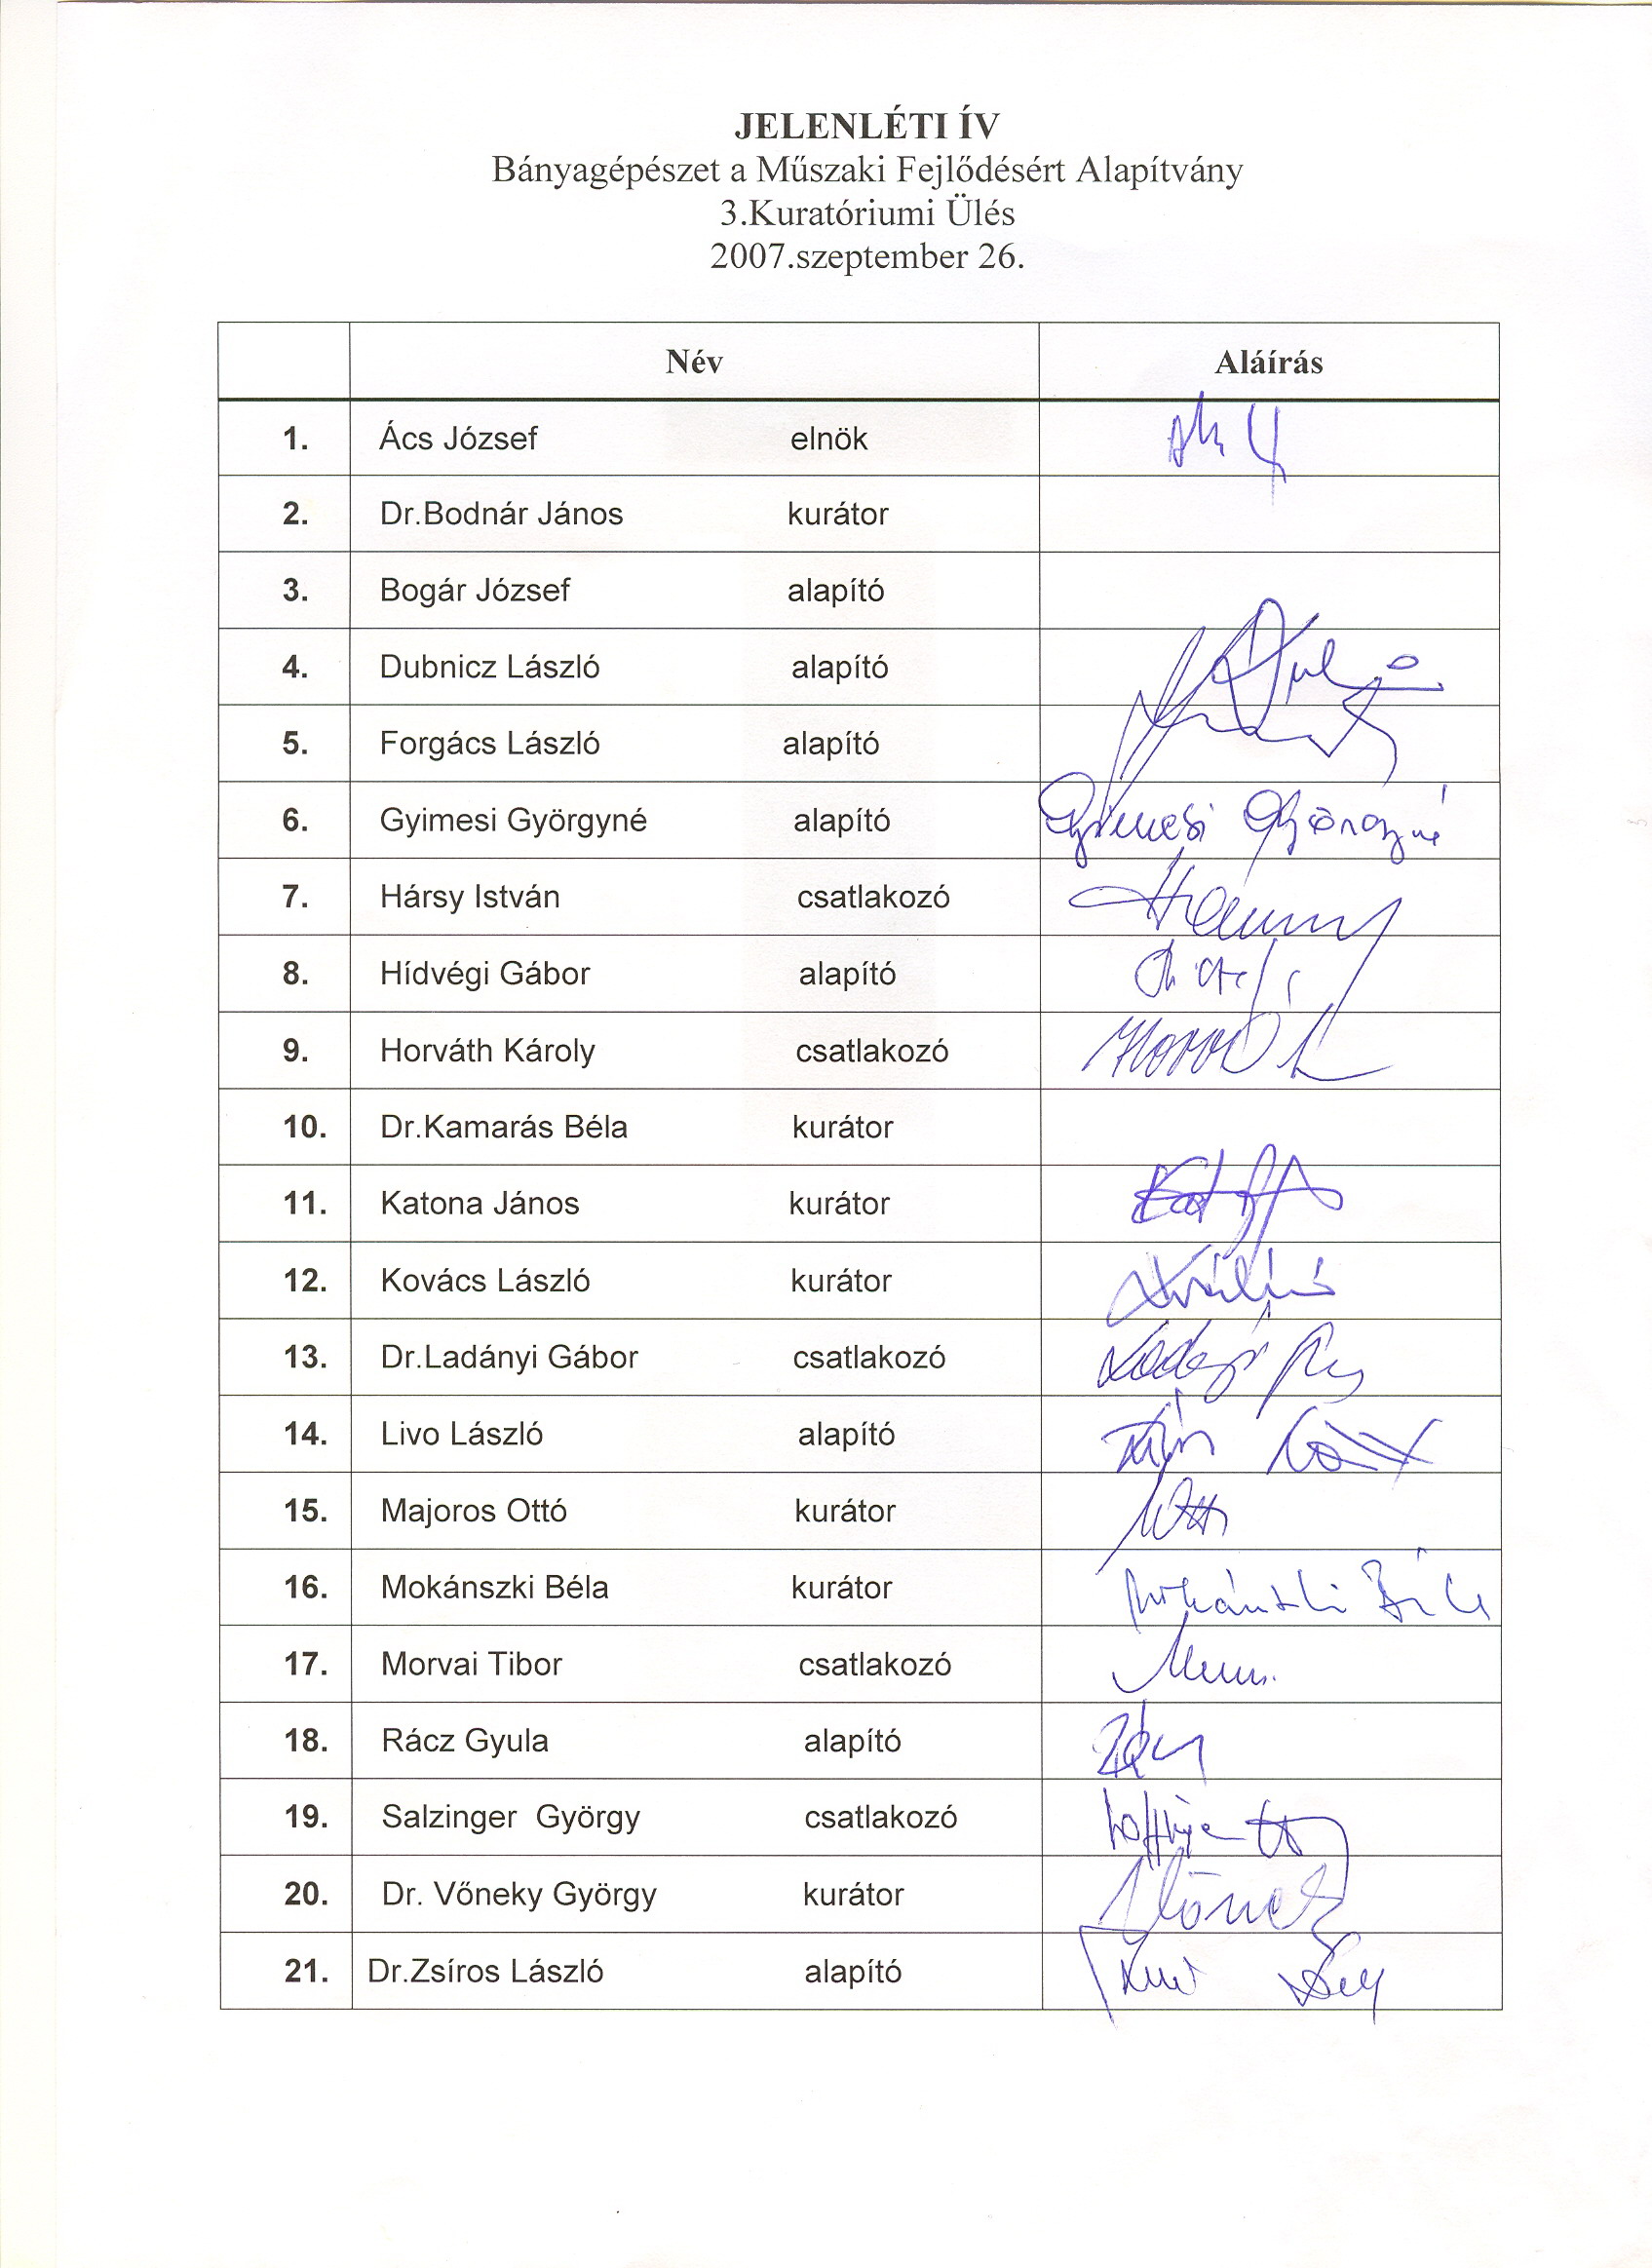 JELENLÉTI ÍV
Bányagépészet a Műszaki Fejlődésért Alapítvány
3.Kuratóriumi Ülés
2007.szeptember 26.
Név Aláírás
1. Ács József elnök
2. Dr.Bodnár János kurátor
3. Bogár József alapító
4. Dubnicz László alapító
5. Forgács László alapító
6. Gyimesi Györgyné alapító Gyimesi Györgyné
7. Hársy István csatlakozó
8. Hídvégi Gábor alapító
9. Horváth Károly csatlakozó
10. Dr.Kamarás Béla kurátor
11. Katona János kurátor
12. Kovács László kurátor
13. Dr.Ladányi Gábor csatlakozó
14. Livo László alapító
15. Majoros Ottó kurátor
16. Mokánszki Béla kurátor Mokánszki Béla
17. Morvai Tibor csatlakozó
18. Rácz Gyula alapító
19. Salzinger György csatlakozó
20. Dr. Vőneky György kurátor
21. Dr.Zsíros László alapító